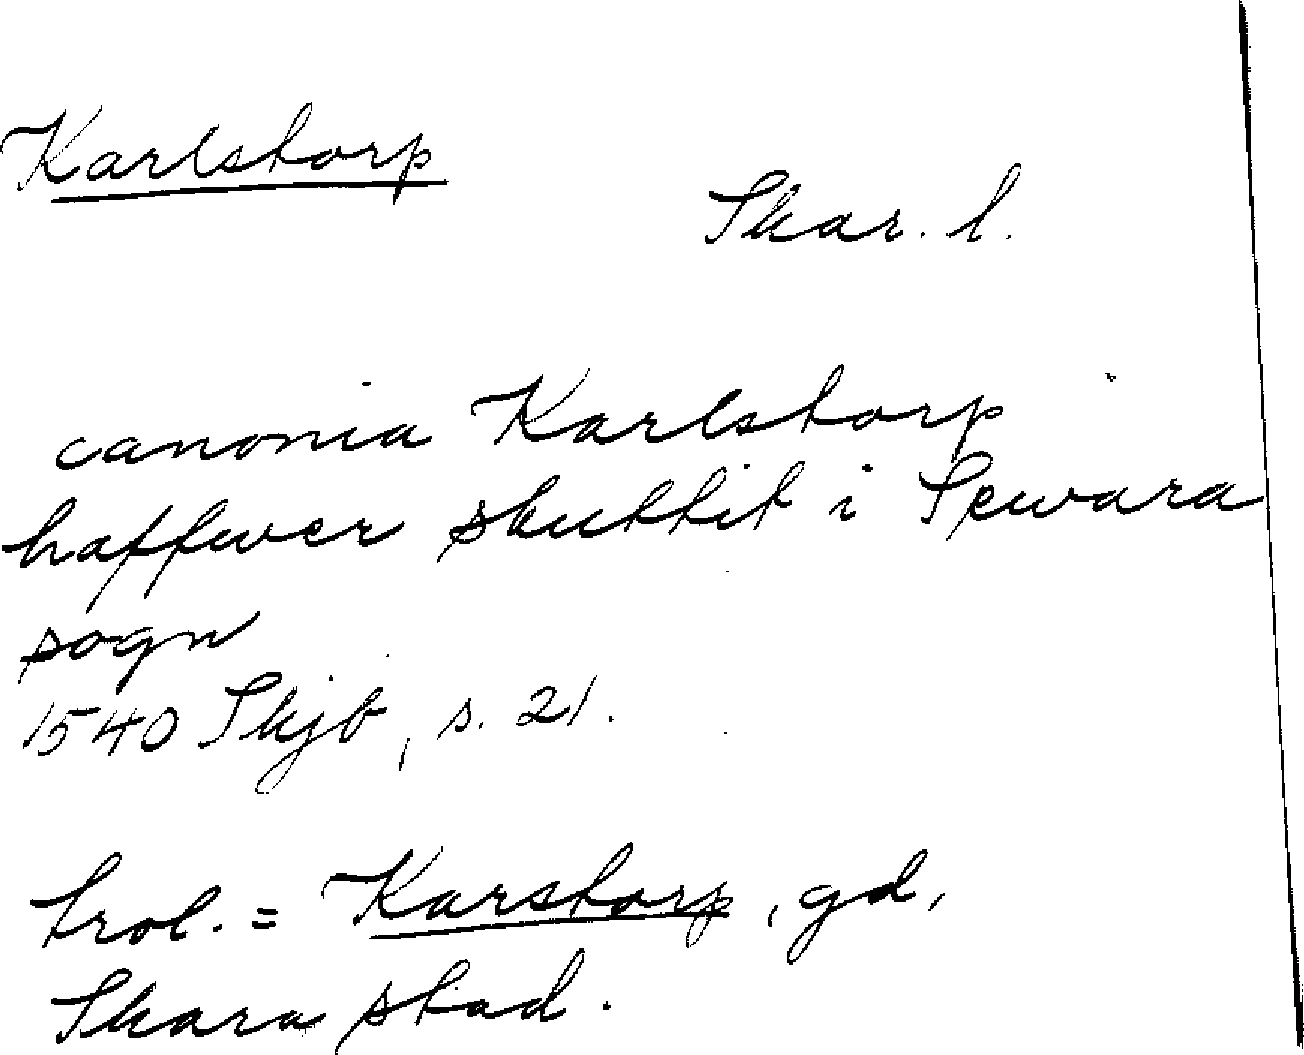 Karlstorp
Skar. l.
canonia Karlstorp
haffwer skuttit i Spwara
sogn
1540 Skjb, s. 21.
trol. = Karstorp, gd,
Skara stad.